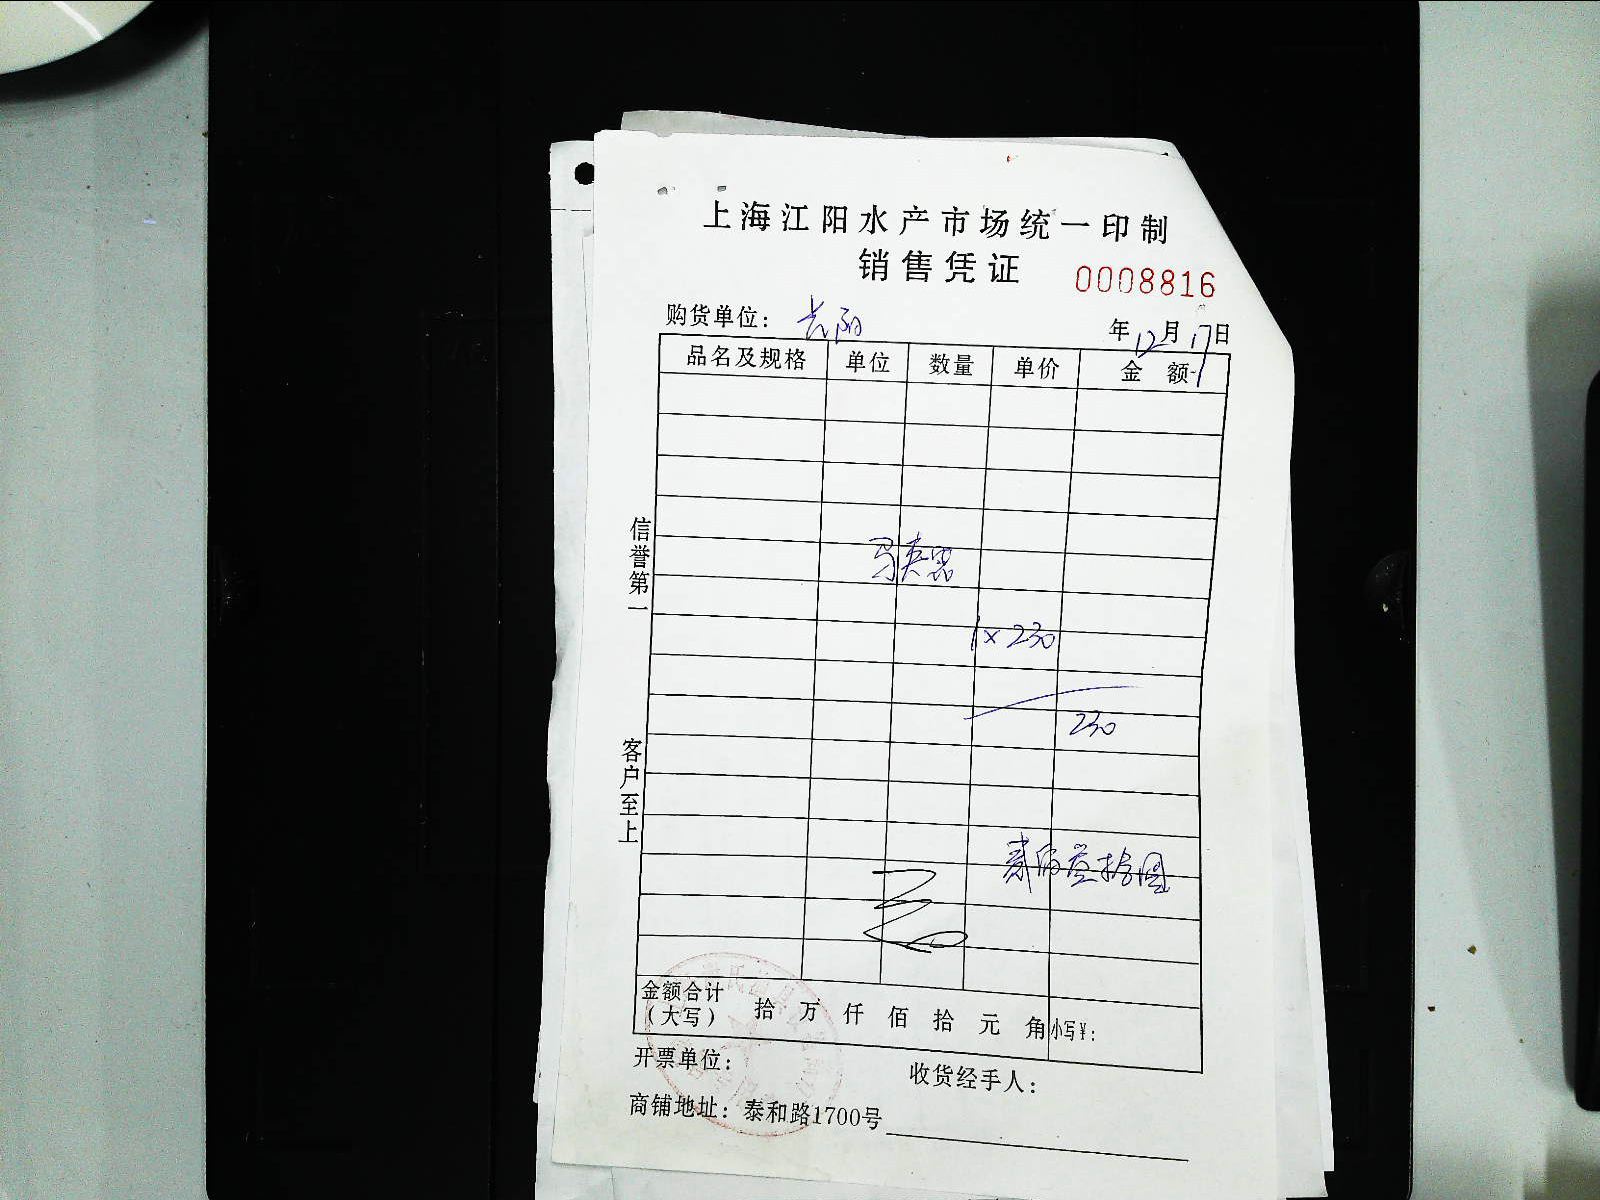 上海江阳水产市场统一印制
销售凭证 0008816
购货单位： 长阳 年12月17日
品名及规格 单位 数量 单价 金额
信誉第一
1×230
230
客户至上
贰佰叁拾圆
金额合计（大写） 拾 万 仟 佰 拾 元 角 小写¥：
开票单位：
收货经手人：
商铺地址：泰和路1700号